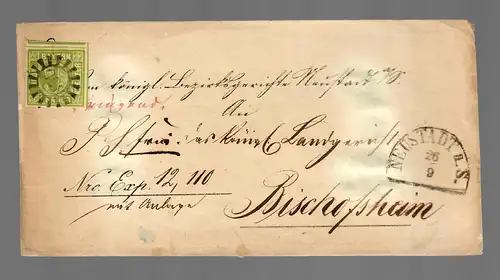 Vom königl. Bezirksgerichte Neustadt a/S.
Dringend.
An
das königl. Landgericht
Nro. Exp. 12,110
mit Anlage
Bischofsheim
NEUSTADT a.S.
26
9